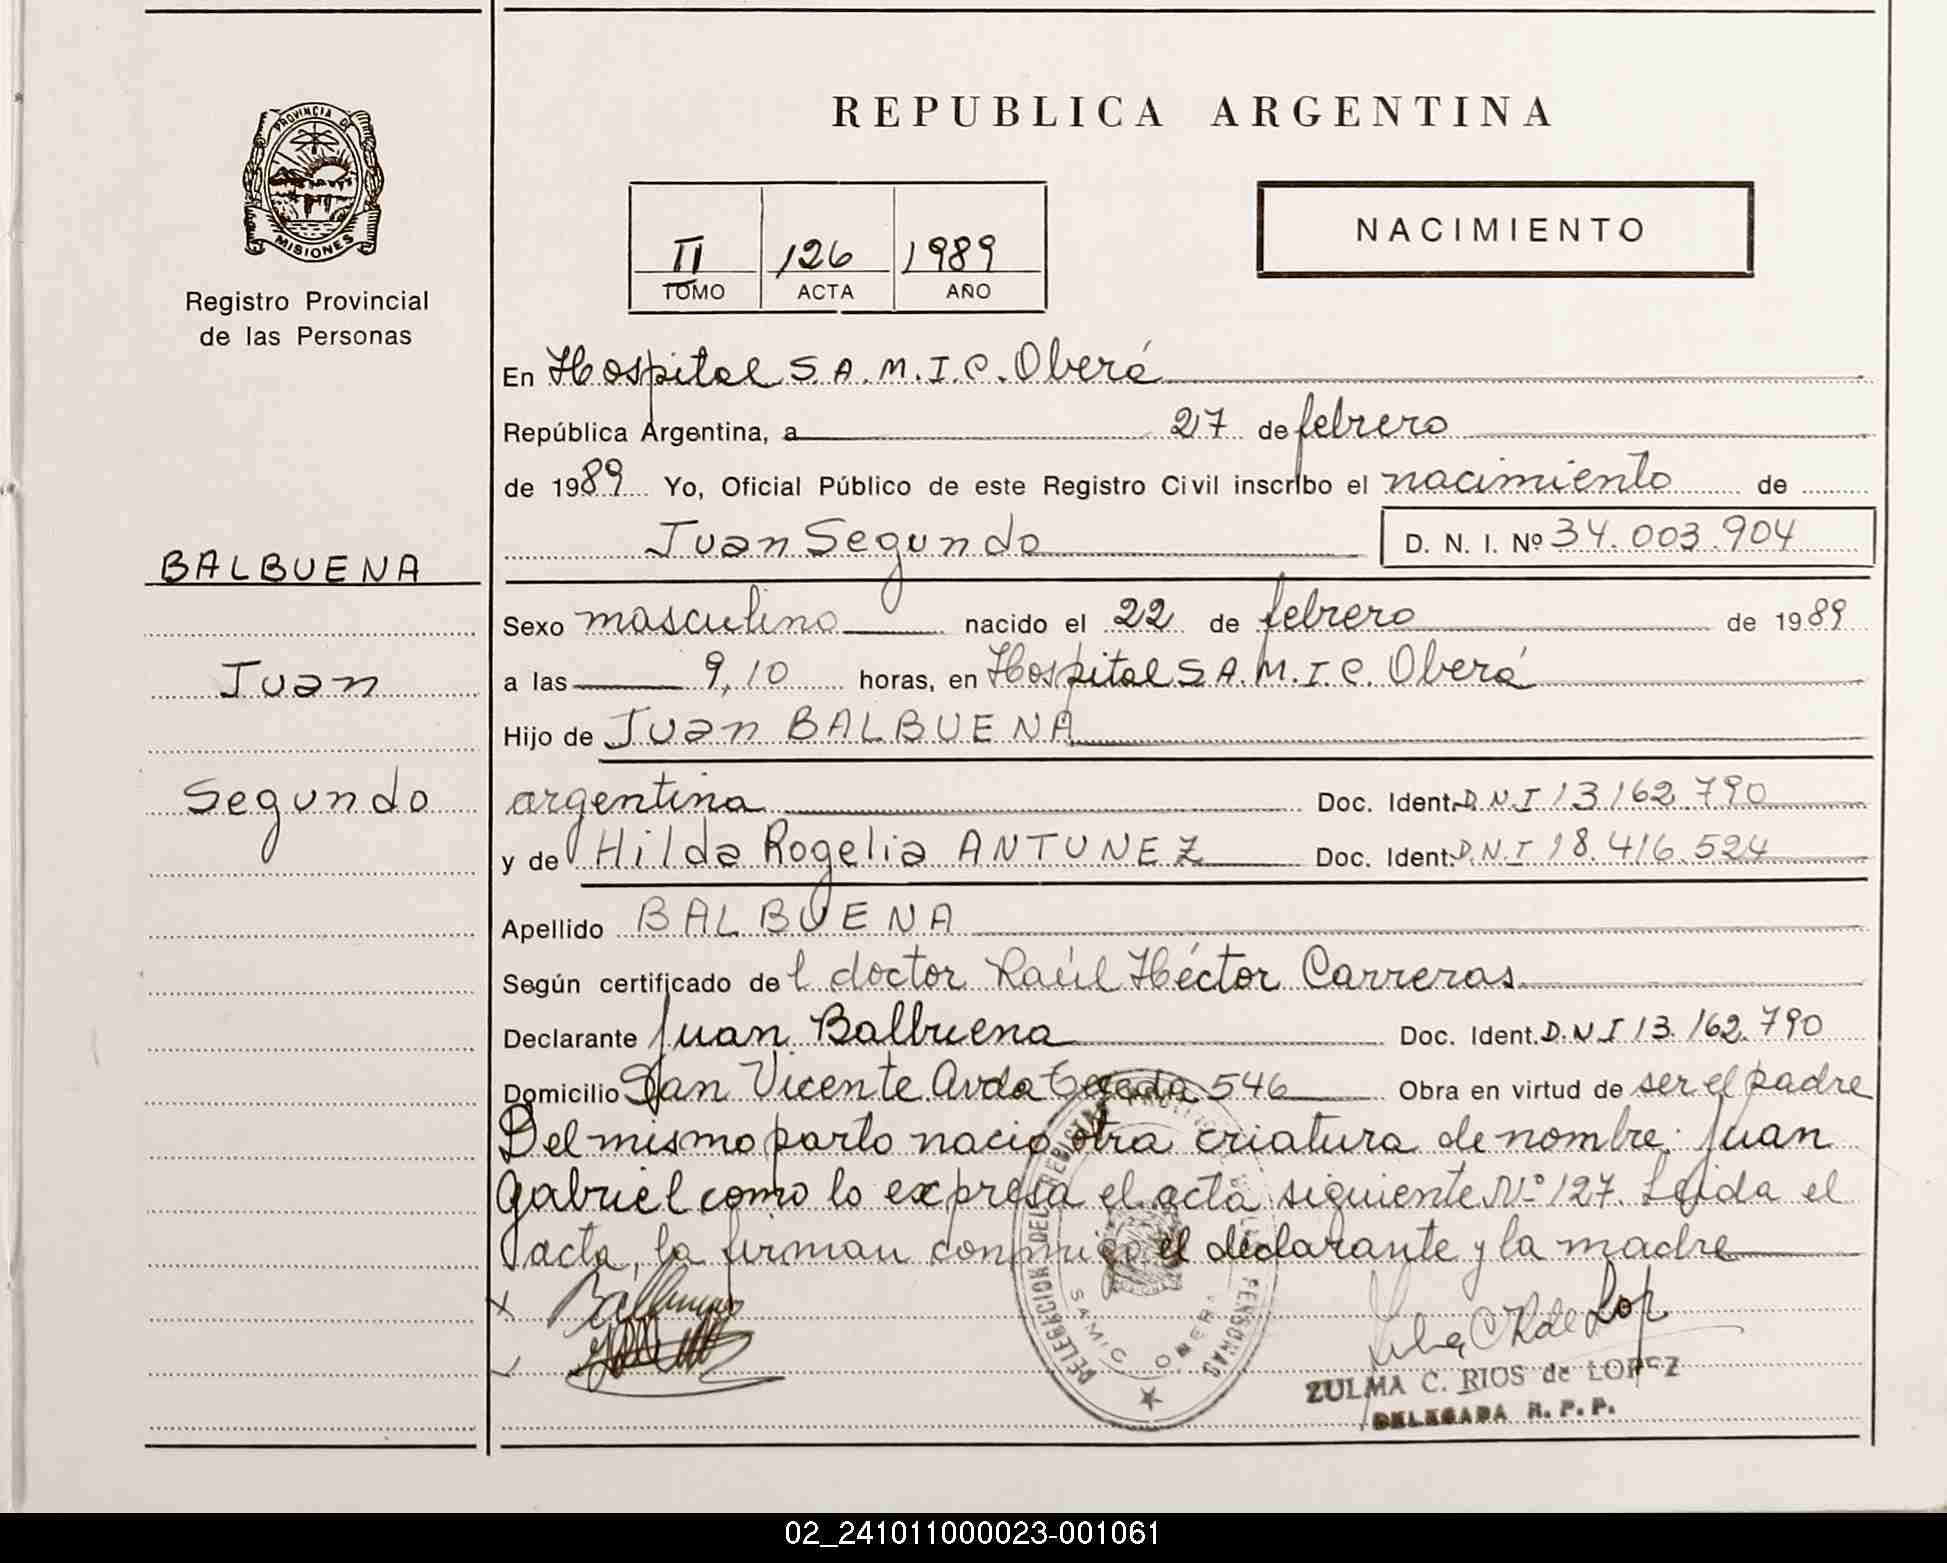 PROVINCIA DE
MISIONES
Registro Provincial
de las Personas
BALBUENA
Juan
Segundo
REPUBLICA ARGENTINA
II 126 1989
TOMO ACTA AÑO
NACIMIENTO
En Hospital S.A.M.I.C. Oberá
República Argentina, a 27 de febrero
de 1989 Yo, Oficial Público de este Registro Civil inscribo el nacimiento de
Juan Segundo D. N. I. Nº 34.003.904
Sexo masculino nacido el 22 de febrero de 1989
a las 9,10 horas, en Hospital S.A.M.I.C. Oberá
Hijo de Juan BALBUENA
argentina Doc. Ident. D.N.I 13.162.790
y de Hilda Rogelia ANTUNEZ Doc. Ident. D.N.I 18.416.524
Apellido BALBUENA
Según certificado de l doctor Raúl Héctor Carreras
Declarante Juan Balbuena Doc. Ident. D.N.I 13.162.790
Domicilio San Vicente Avda 546 Obra en virtud de ser el padre
Del mismo parto nació otra criatura de nombre: Juan
Gabriel como lo expresa el acta siguiente Nº 127. Leida el
acta, la firman conmigo el declarante y la madre
Balbuena
SAMIC OBERA
ZULMA C. RIOS de LOPEZ
DELEGADA R. P. P.
02_241011000023-001061